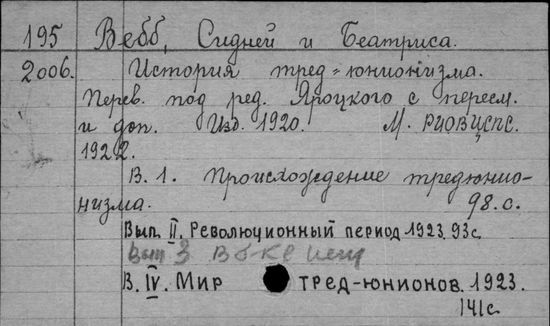 195 Вебб, Сидней и Беатриса.
2006. История тред-юнионизма.
Перев. под ред. Яроцкого с пересм.
и доп. Изд. 1920. М. РИОВЦСПС.
1922.
В. 1. Происхождение тредюнио-
низма. 98. с.
Вып. II. Революционный период 1923. 93 с.
Вып 3
В. IV. Мир тред-юнионов. 1923.
141 с.